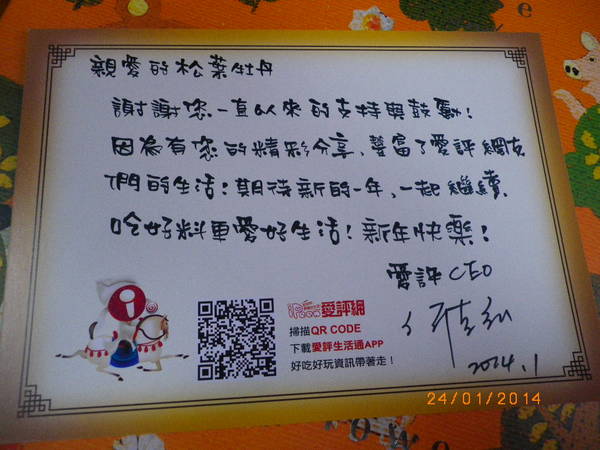 親愛的松葉牡丹
謝謝您一直以來的支持與鼓勵！
因為有您的精彩分享，豐富了愛評網友
們的生活！期待新的一年，一起繼續，
吃好料更愛好生活！新年快樂！
愛評 CEO
2014.1
iPeen 愛評網
掃描QR CODE
下載愛評生活通APP
好吃好玩資訊帶著走！
24/01/2014